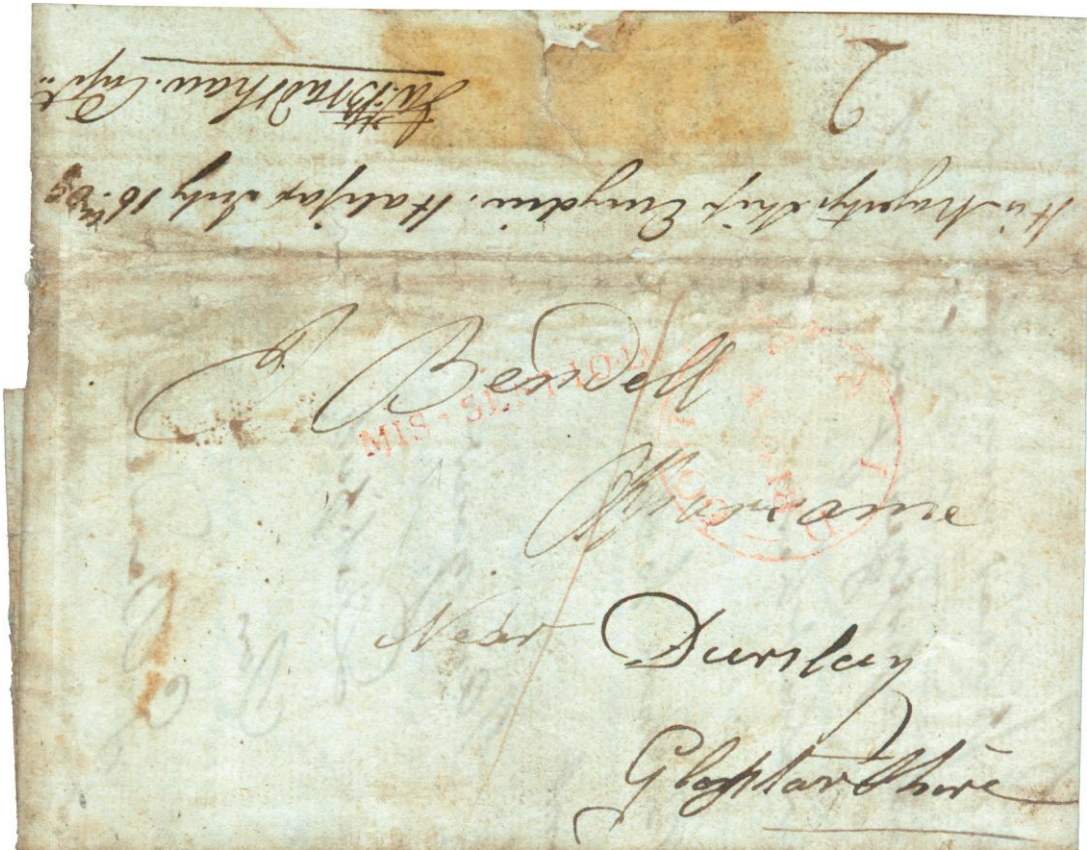 His Majestys Ship Eurydice. Halifax July 16th 09
Bradshaw. Capt
2
Bendell
MIS-SENT TO
Near Dursley
Glosstarshire